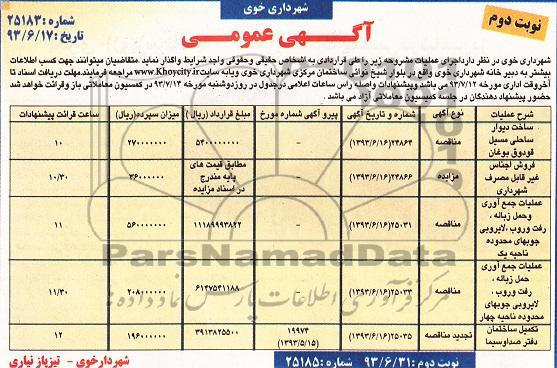 شهرداری خوی
نوبت دوم
آگهی عمومی
شماره :۲۵۱۸۳
تاریخ :۹۳/۶/۱۷
شهرداری خوی در نظر دارداجرای عملیات مشروحه زیر راطی قراردادی به اشخاص حقیقی وحقوقی واجد شرایط واگذار نماید .متقاضیان میتوانند جهت کسب اطلاعات
بیشتر به دبیر خانه شهرداری خوی واقع در بلوار شیخ نوائی ساختمان مرکزی شهرداری خوی ویابه سایت www.Khoycity.ir مراجعه فرمایند.مهلت دریافت اسناد تا
آخروقت اداری مورخه ۹۳/۷/۱۲ می باشد وپیشنهادات واصله راس ساعات اعلامی درجدول در روزدوشنبه مورخه ۹۳/۷/۱۴ در کمسیون معاملاتی باز وقرائت خواهد شد
حضور پیشنهاد دهندگان در جلسه کمسیون معاملاتی آزاد می باشد .
شرح عملیات نوع آگهی شماره و تاریخ آگهی پیرو آگهی شماره مورخ مبلغ قرارداد (ریال ) میزان سپرده(ریال) ساعت قرائت پیشنهادات
ساخت دیوار
ساحلی مسیل
قودوق بوغان
مناقصه ۲۴۸۶۴(۱۳۹۳/۶/۱۶) – ۵۴۰۰۰۰۰۰۰۰ ۲۷۰۰۰۰۰۰۰ ۱۰
فروش اجناس
غیر قابل مصرف
شهرداری
مزایده ۲۴۸۶۶(۱۳۹۳/۶/۱۶) –
مطابق قیمت های
پایه مندرج
در اسناد مزایده
۳۶۰۰۰۰۰۰ ۱۰/۳۰
عملیات جمع آوری
وحمل زباله ،
رفت وروب ،لایروبی
جوبهای محدوده
ناحیه یک
مناقصه ۲۵۰۳۱(۱۳۹۳/۶/۱۶) – ۱۱۱۸۹۹۹۳۸۲۲ ۵۶۰۰۰۰۰۰۰ ۱۱
عملیات جمع آوری
حمل زباله ،
رفت وروب ،
لایروبی جوبهای
محدوده ناحیه چهار
مناقصه ۲۵۰۳۳(۱۳۹۳/۶/۱۶) – ۶۱۴۷۵۴۱۱۸۸ ۲۰۸۰۰۰۰۰۰ ۱۱/۳۰
تکمیل ساختمان
دفتر صداوسیما
تجدید مناقصه ۲۵۰۳۵(۱۳۹۳/۶/۱۶)
۱۹۹۷۴
(۱۳۹۳/۵/۱۵)
۳۹۱۳۸۲۵۵۰۰ ۱۹۶۰۰۰۰۰۰ ۱۲
نوبت دوم: ۹۳/۶/۳۱ شماره :۲۵۱۸۵
شهردارخوی - تیزپاز نیاری
ParsNamadData
مرکز فرآوری اطلاعات پارس نماد داده ها